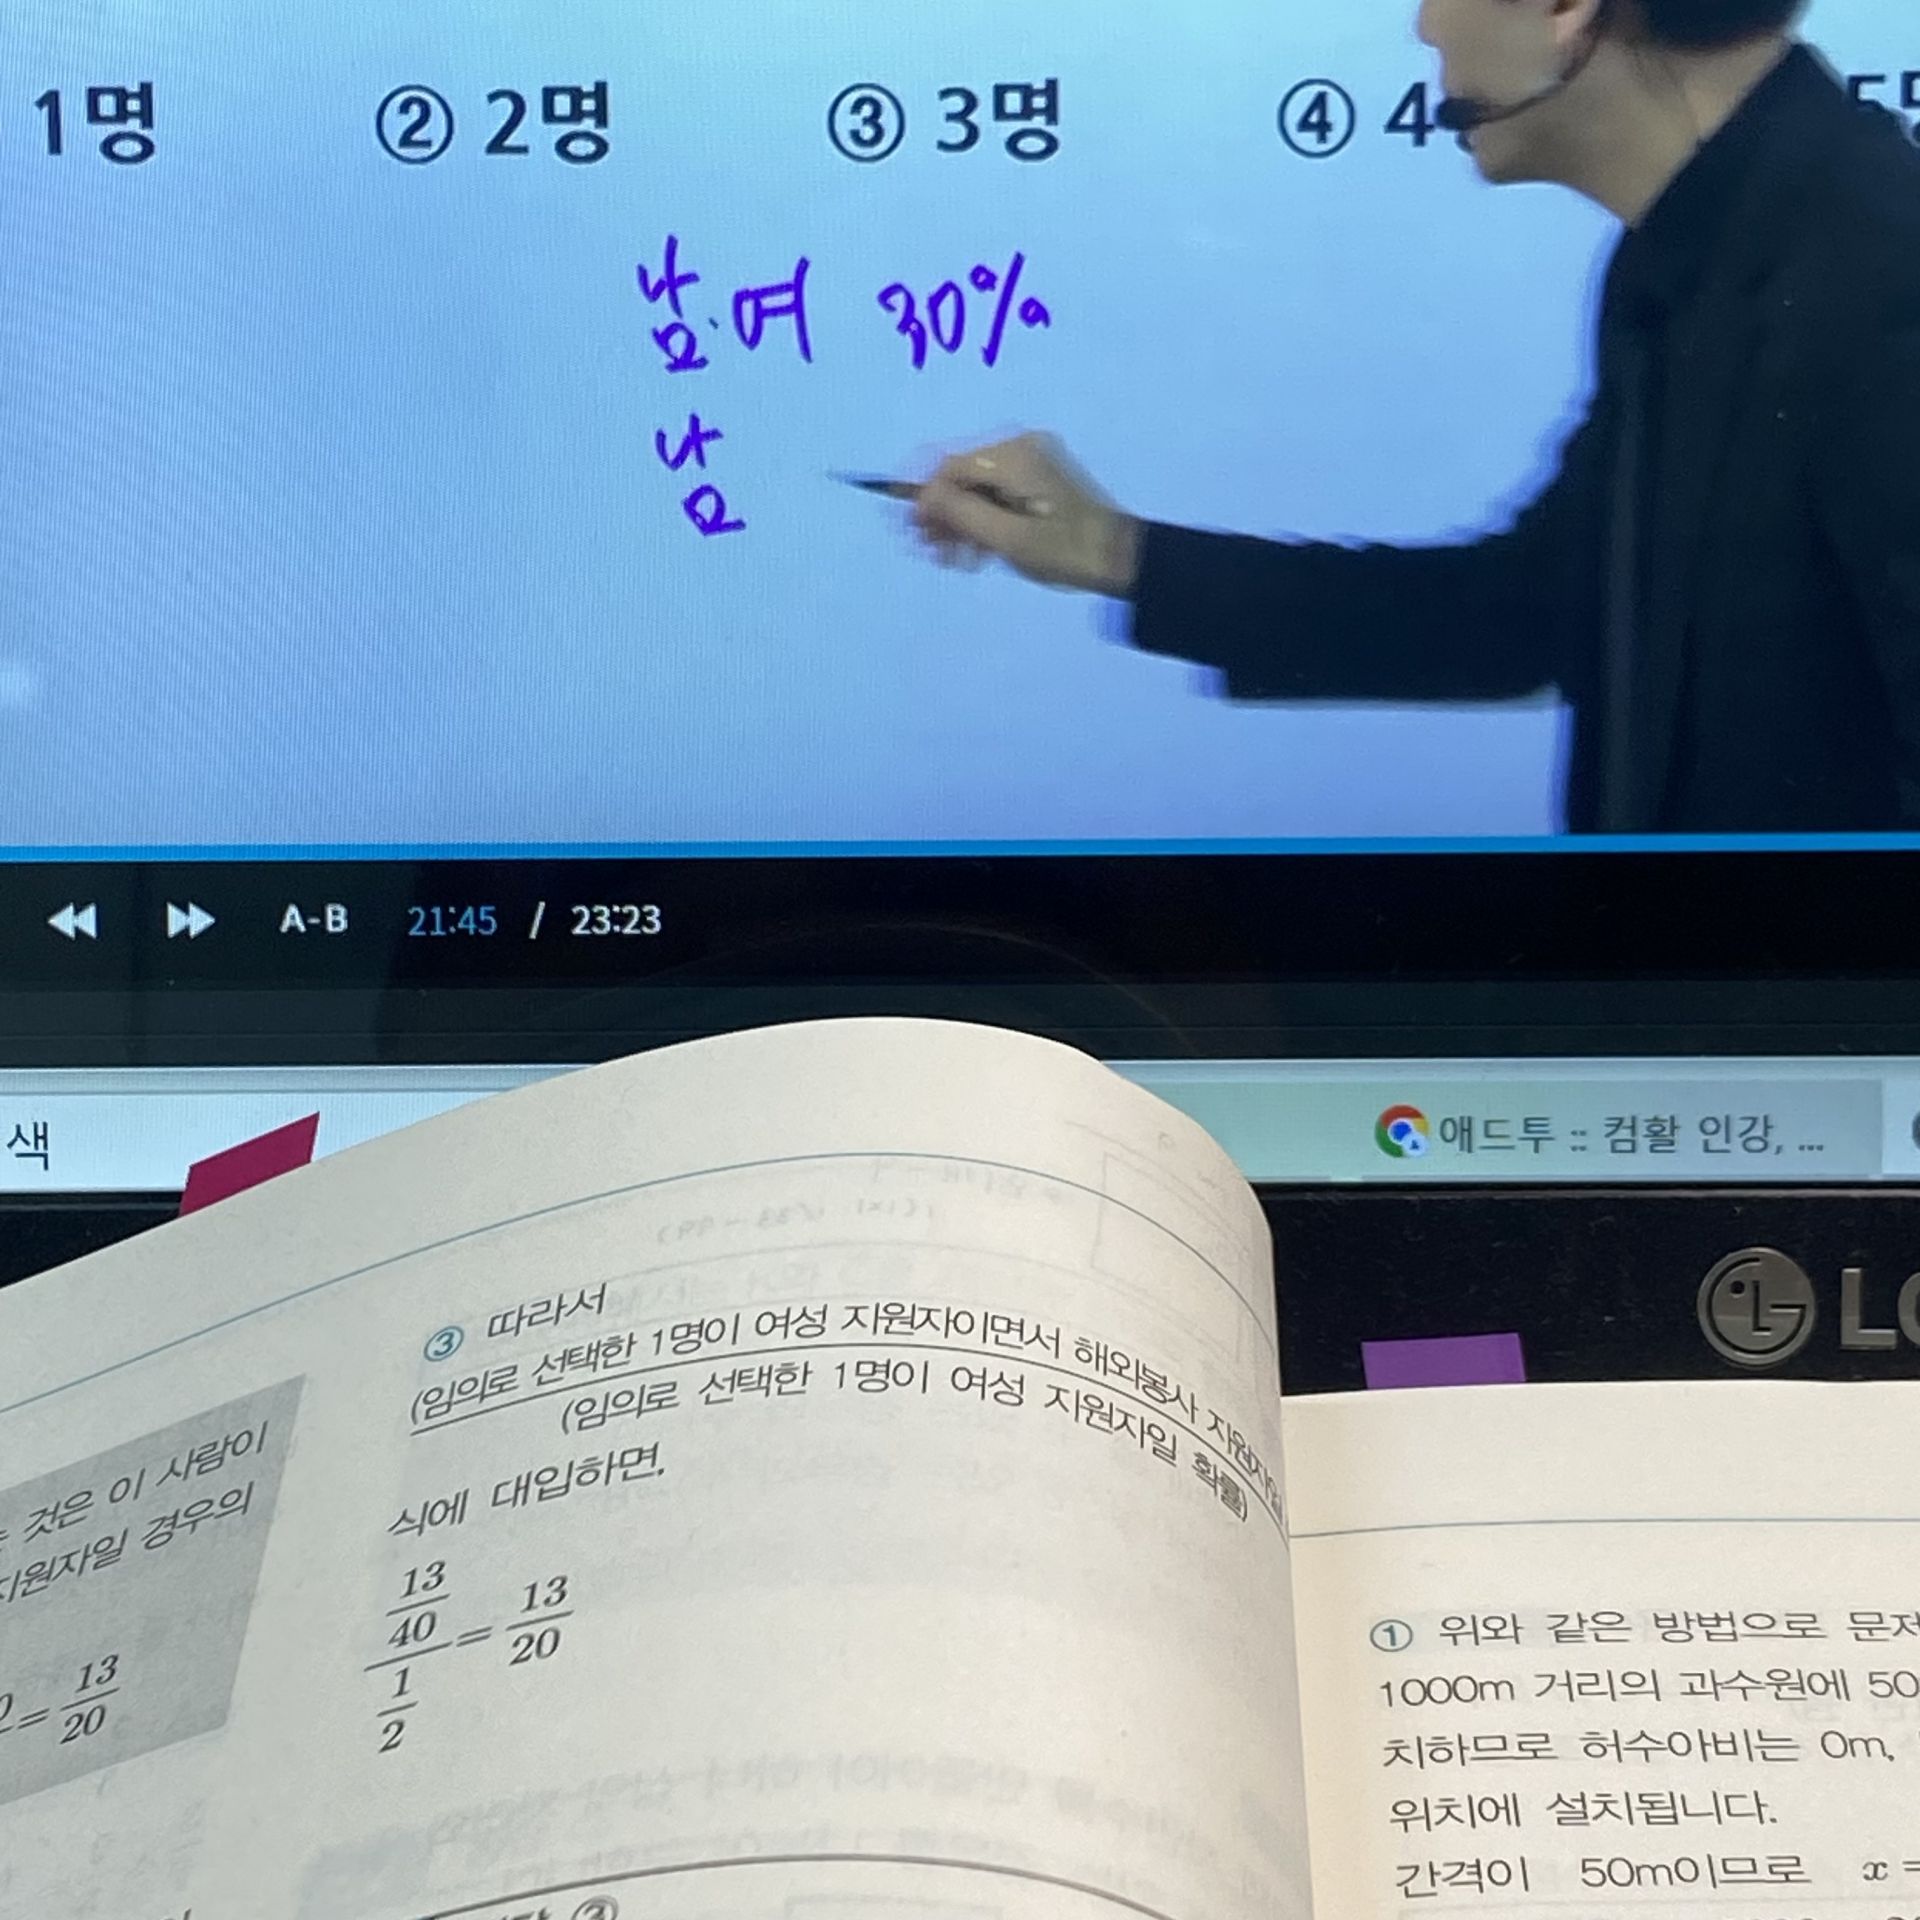 1명 ② 2명 ③ 3명 ④ 4
남·여 30%
남
A-B 21:45 / 23:23
색
애드투 :: 컴활 인강, ...
LG
③ 따라서
(임의로 선택한 1명이 여성 지원자이면서 해외봉사 지원자일
(임의로 선택한 1명이 여성 지원자일 확률)
식에 대입하면,
13/40 / 1/2 = 13/20
것은 이 사람이
지원자일 경우의
= 13/20
① 위와 같은 방법으로 문제
1000m 거리의 과수원에 50
치하므로 허수아비는 0m,
위치에 설치됩니다.
간격이 50m이므로 x =